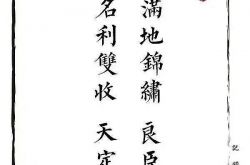 滿地錦繡 良臣
名利雙收 天定